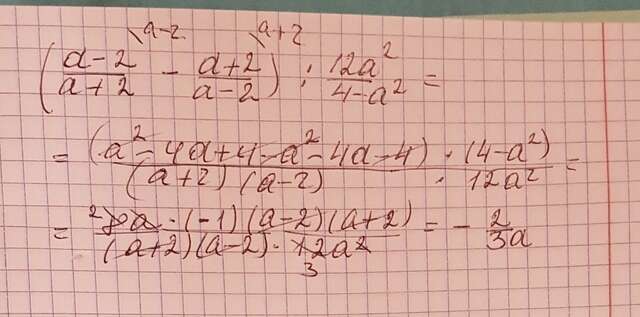 a-2 a+2
(a-2/a+2 - a+2/a-2) : 12a²/4-a² =
= (a²-4a+4-a²-4a-4)·(4-a²)/(a+2)(a-2)·12a² =
= ²8a·(-1)(a-2)(a+2)/(a+2)(a-2)·12a² = -2/3a
3